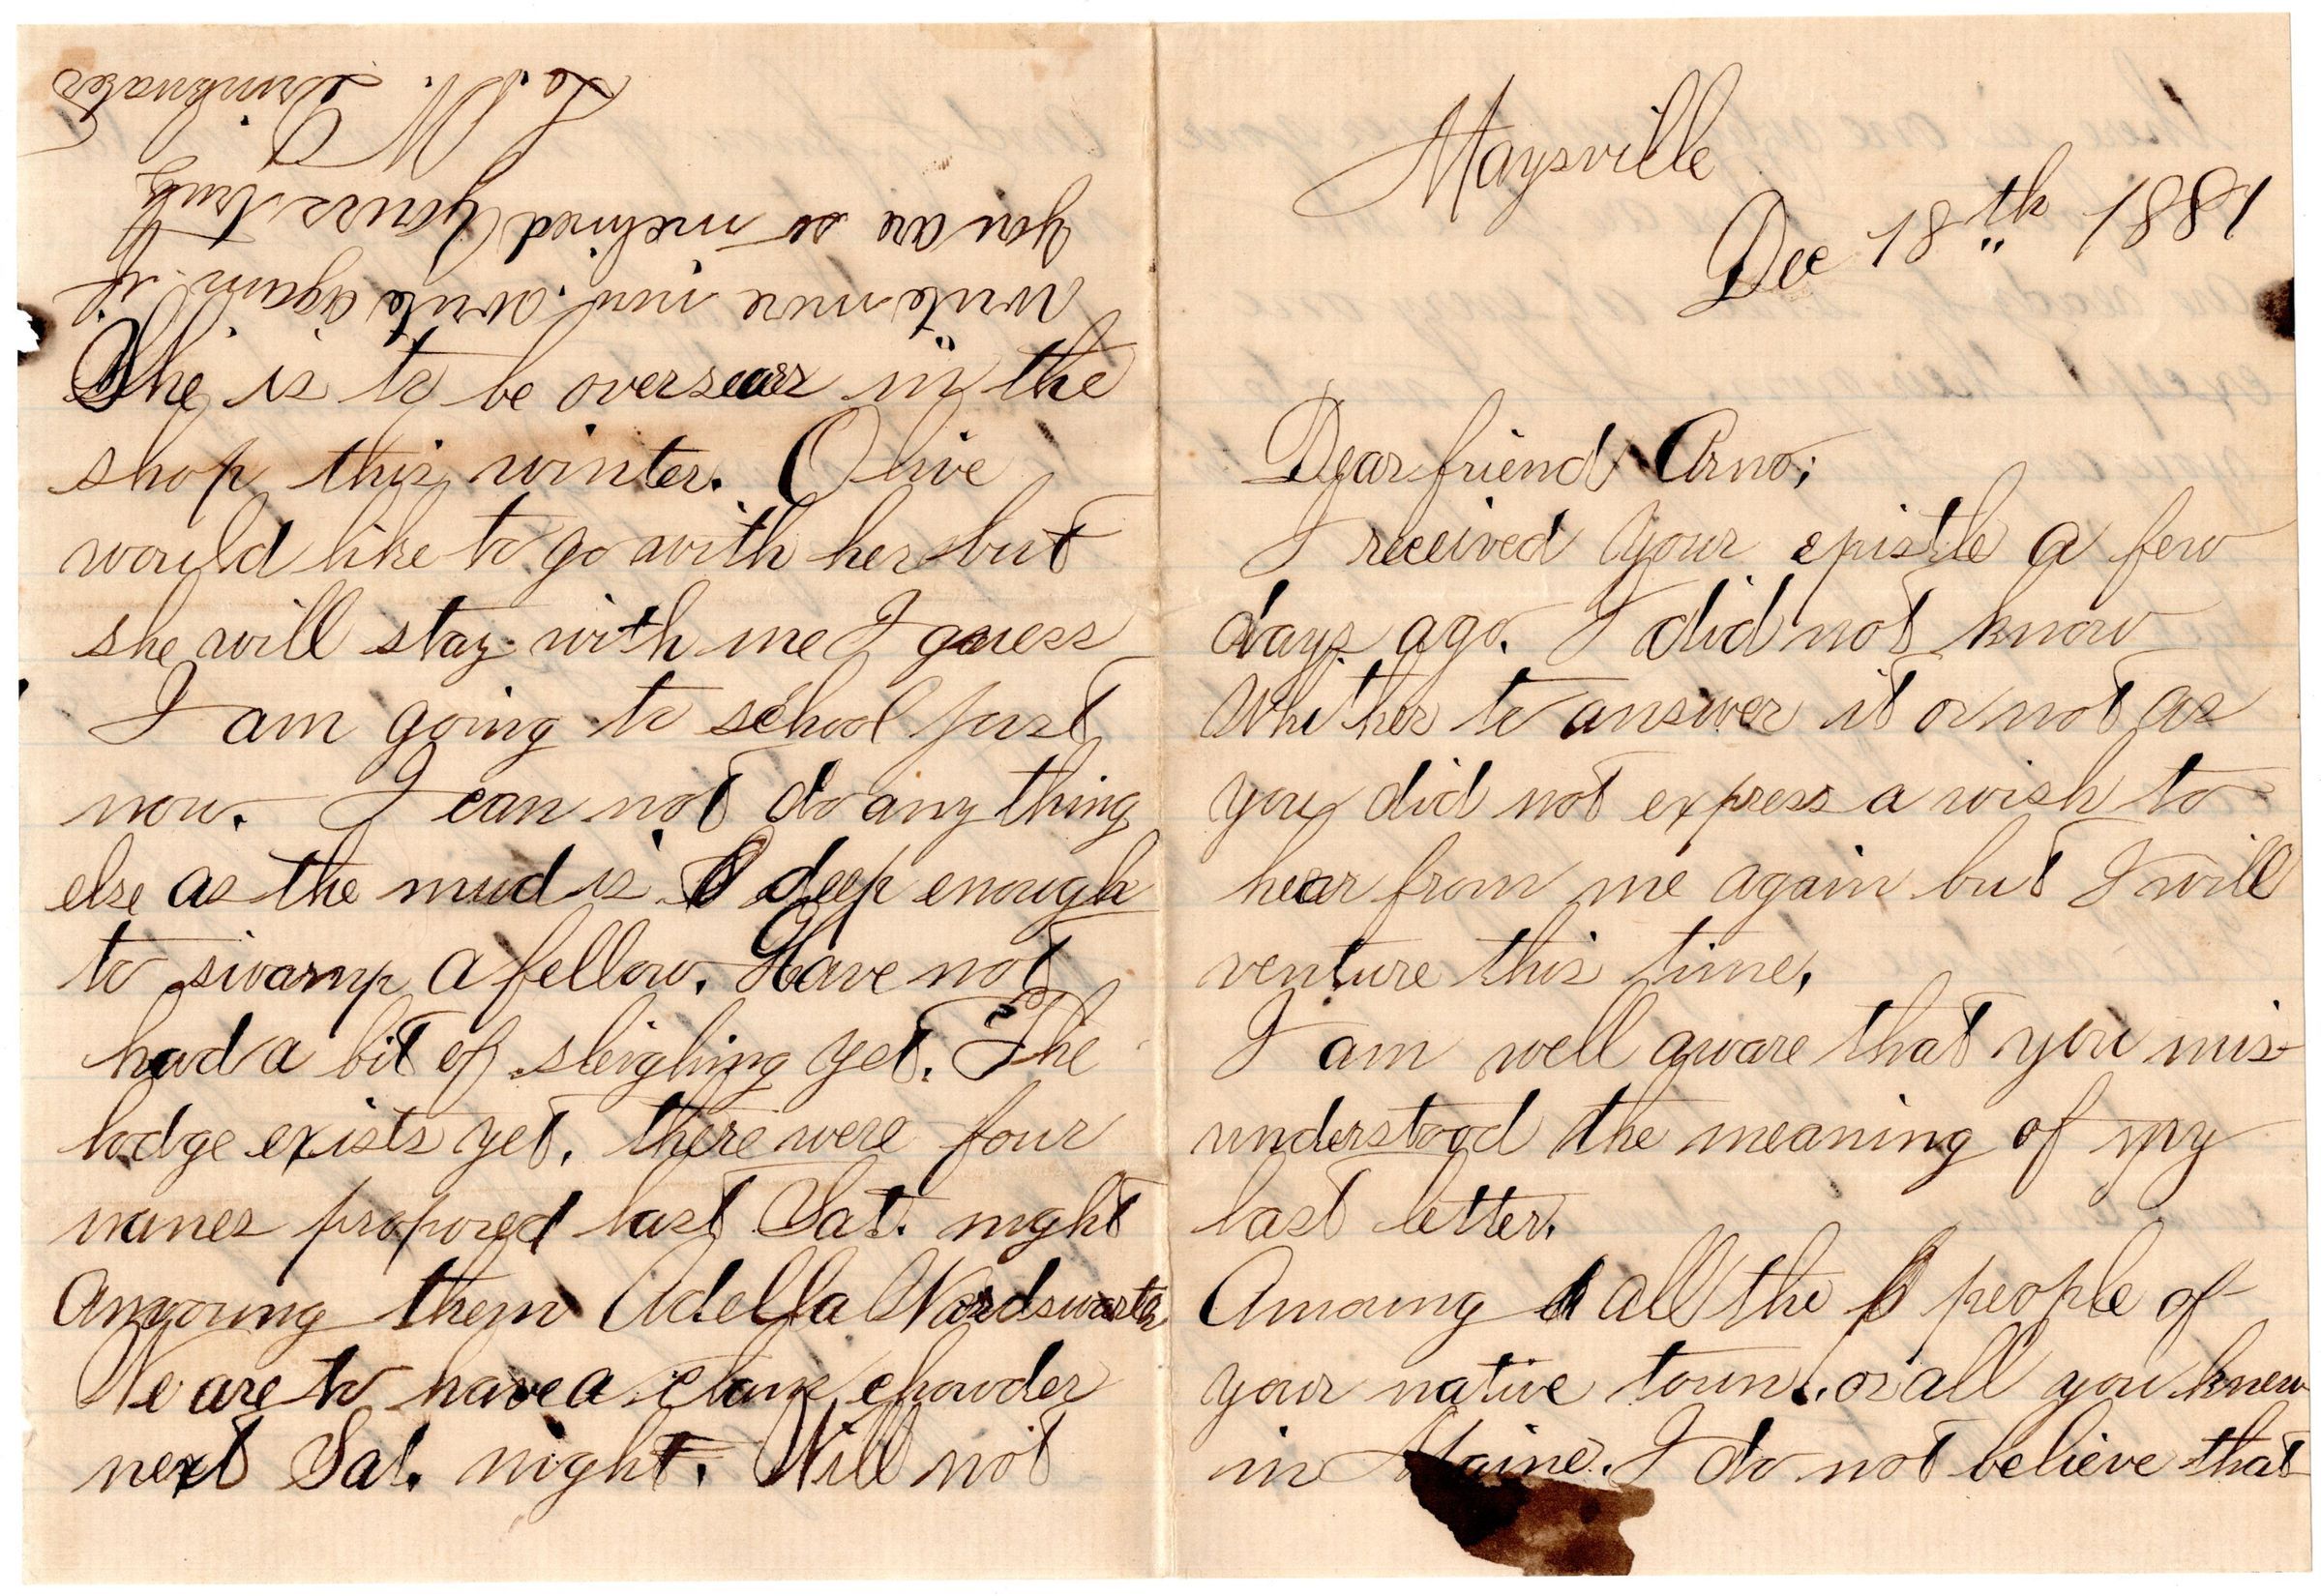 Maysville
Dec 18th 1881
Dear friend Arno;
I received your epistle a few
days ago. I did not know
whither to answer it or not as
you did not express a wish to
hear from me again but I will
venture this time.
I am well aware that you mis-
understood the meaning of my
last letter.
Amoung all the people of
your native town, or all you knew
in Maine. I do not believe that
She is to be overseer in the
shop this winter. Olive
would like to go with her but
she will stay with me I guess
I am going to school just
now. I can not do any thing
else as the mud is deep enough
to swamp a fellow. Have not
had a bit of sleighing yet. The
lodge exists yet. there were four
names propored last Sat. night
Amyoung them Adella Wordswarth
We are to have a clam chowder
next Sat. night. Will not
write more now. write again if
you are so inclined Yours truly
M. Drinkwater